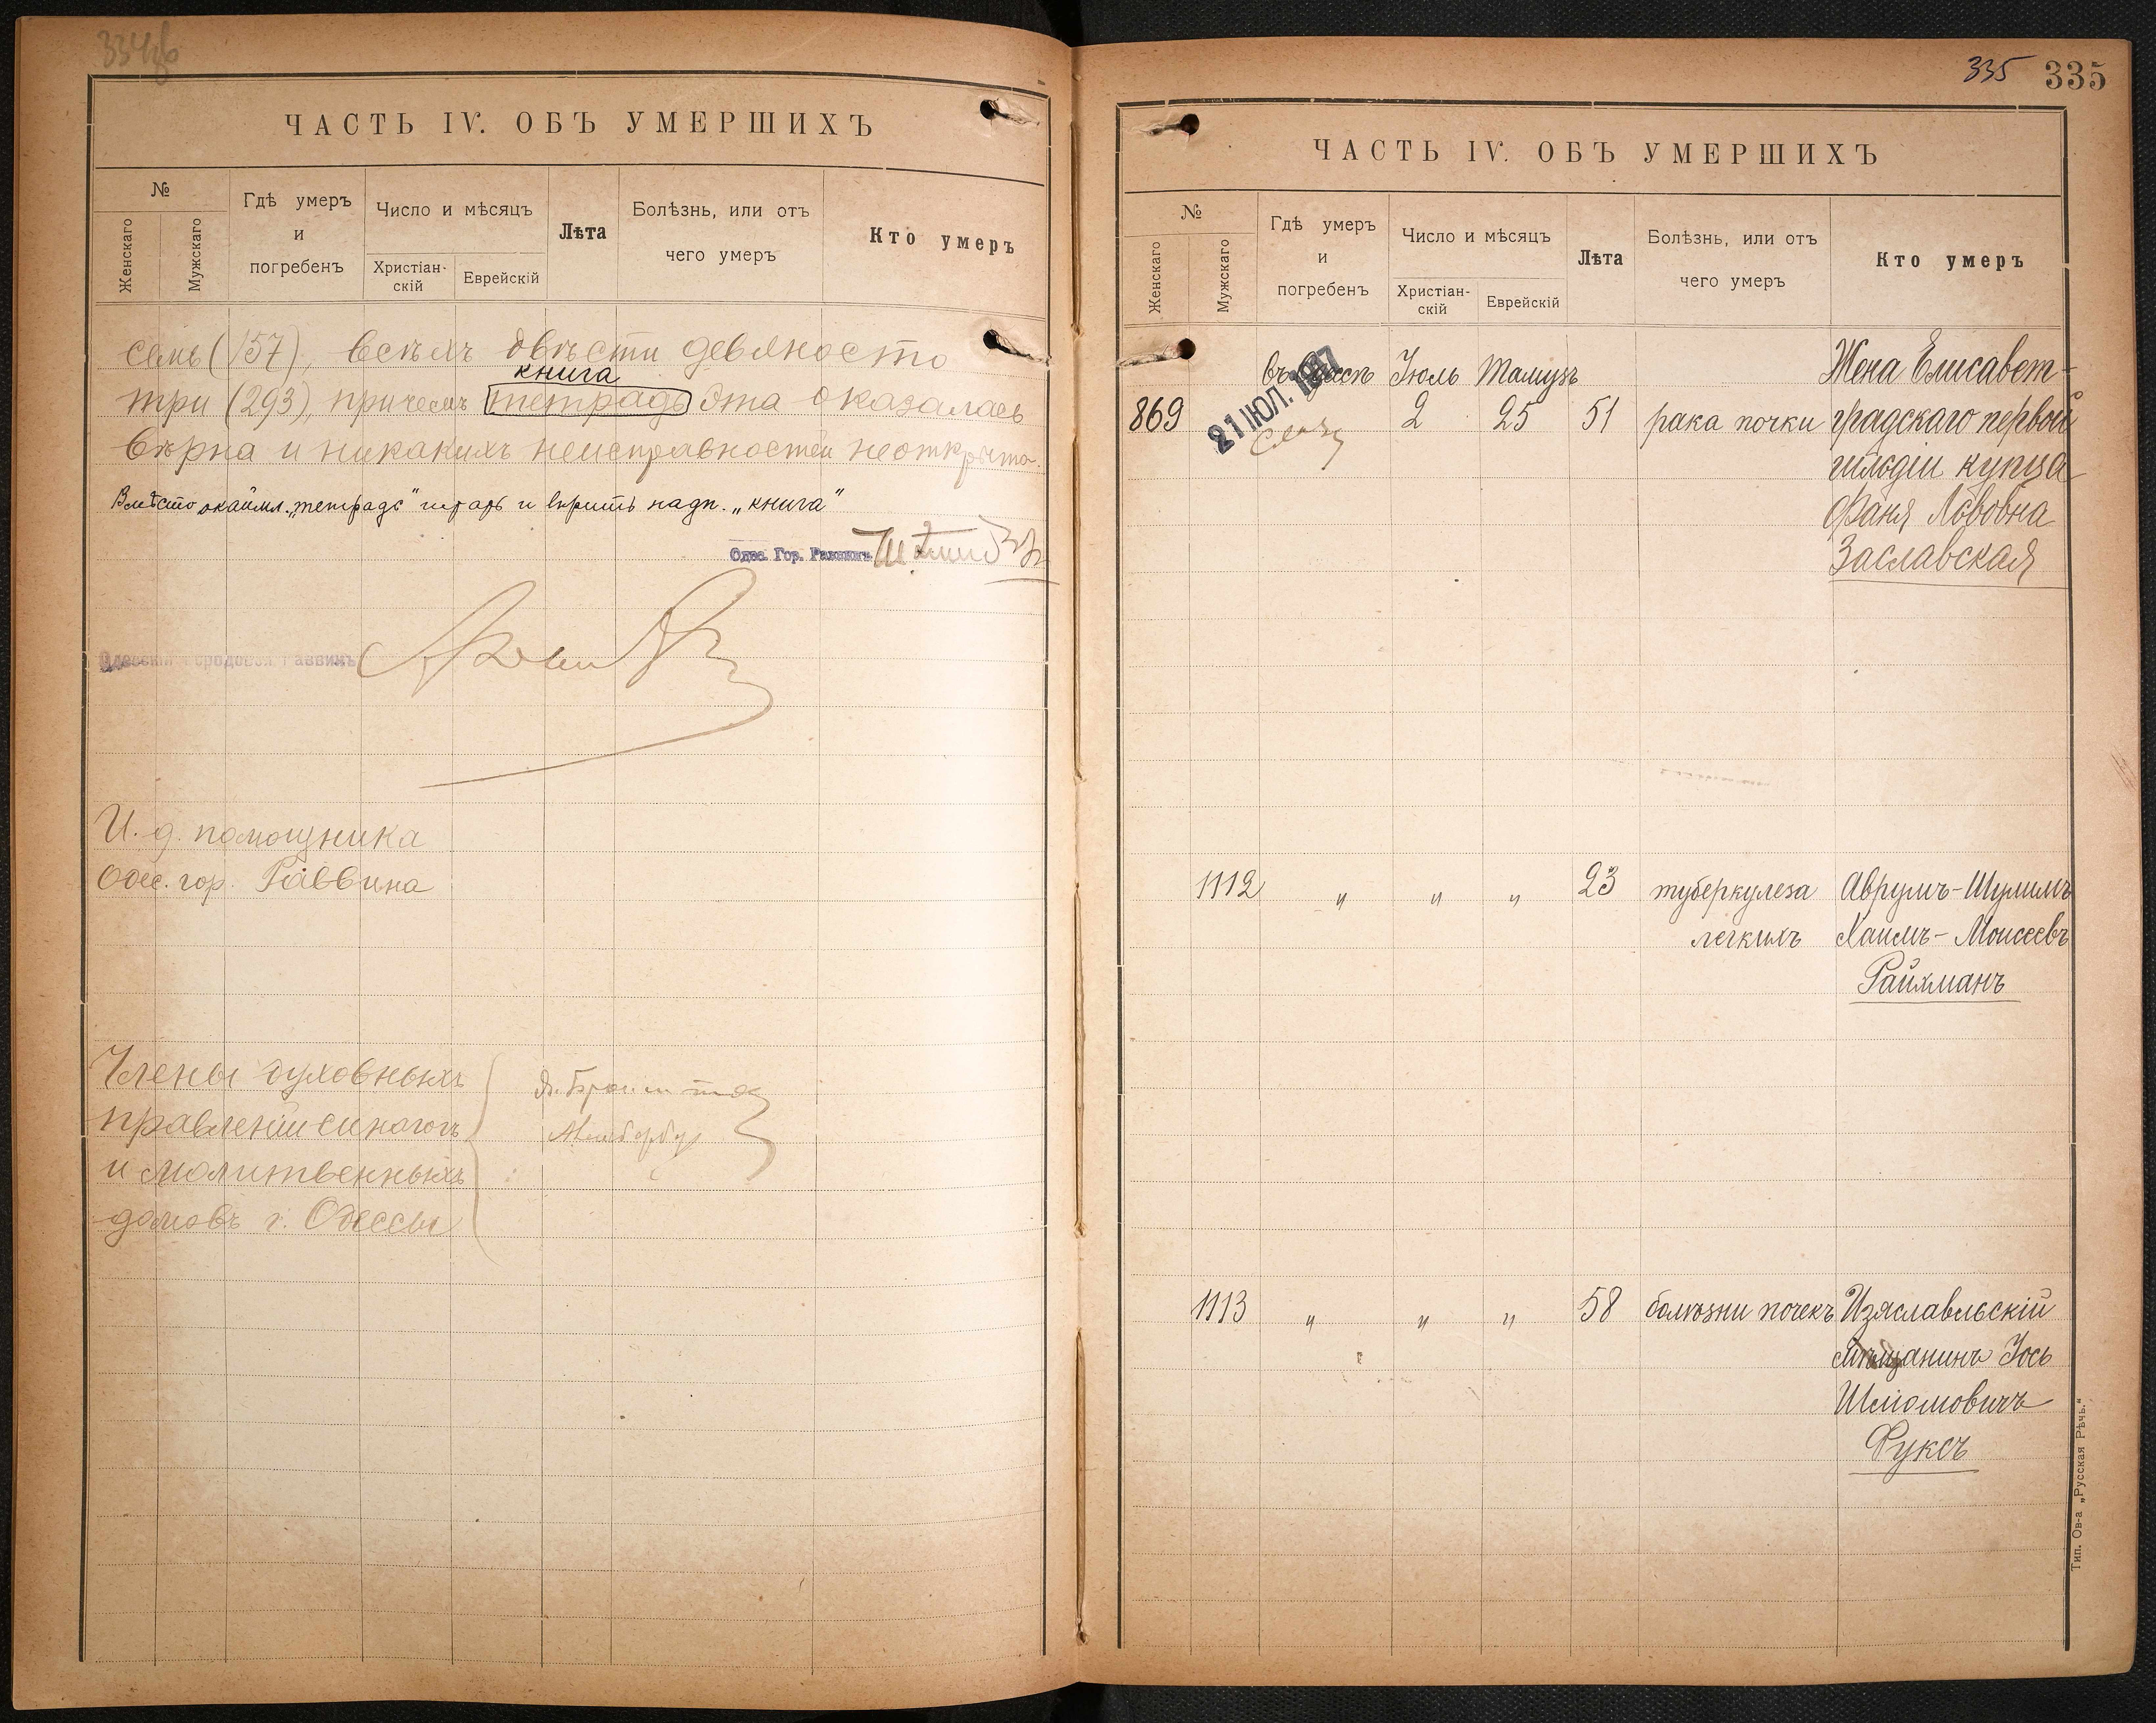 334 об
ЧАСТЬ IV. ОБЪ УМЕРШИХЪ
№
Женскаго
Мужскаго
Гдѣ умеръ
и
погребенъ
Число и мѣсяцъ
Христіан-
скій
Еврейскій
Лѣта
Болѣзнь, или отъ
чего умеръ
Кто умеръ
семь (157), всѣхъ двѣсти девяносто
книга
три (293), причемъ тетрадь эта оказалась
вѣрна и никакихъ неисправностей не открыто.
Вмѣсто окаймл. „тетрадь" читать и вѣрить надп. „книга"
Одес. Гор. Раввинъ
Одесскій Городовой Раввинъ
И. д. помощника
Одес. гор. Раввина
Члены духовныхъ
правленій синагогъ
и молитвенныхъ
домовъ г. Одессы
335 335
ЧАСТЬ IV. ОБЪ УМЕРШИХЪ
№
Женскаго
Мужскаго
Гдѣ умеръ
и
погребенъ
Число и мѣсяцъ
Христіан-
скій
Еврейскій
Лѣта
Болѣзнь, или отъ
чего умеръ
Кто умеръ
въ Одессѣ Іюль Тамузъ Жена Елисавет-
21 ІЮЛ.
869 2 25 51 рака почки градскаго первой
гильдіи купца
Фаня Львовна
Заславская
1112 " " " 23 туберкулеза Аврумъ-Шулимъ
легкихъ Хаимъ-Моисеевъ
Райхманъ
1113 " " " 58 болѣзни почекъ Изяславльскій
мѣщанинъ Іось
Шліомовичъ
Фуксъ
Тип. Ов-а „Русская Рѣчь."